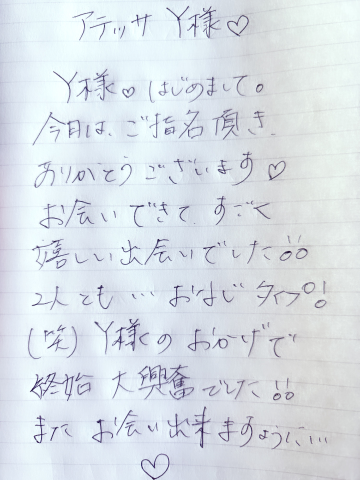 アテッサ Y様♡
Y様♡はじめまして。
今日は、ご指名頂き、
ありがとうございます♡
お会いできて、すごく
嬉しい出会いでした!!
2人とも…おなじタイプ!
(笑) Y様くのおかげで
終始 大興奮でした!!
また お会い出来ますように…
♡